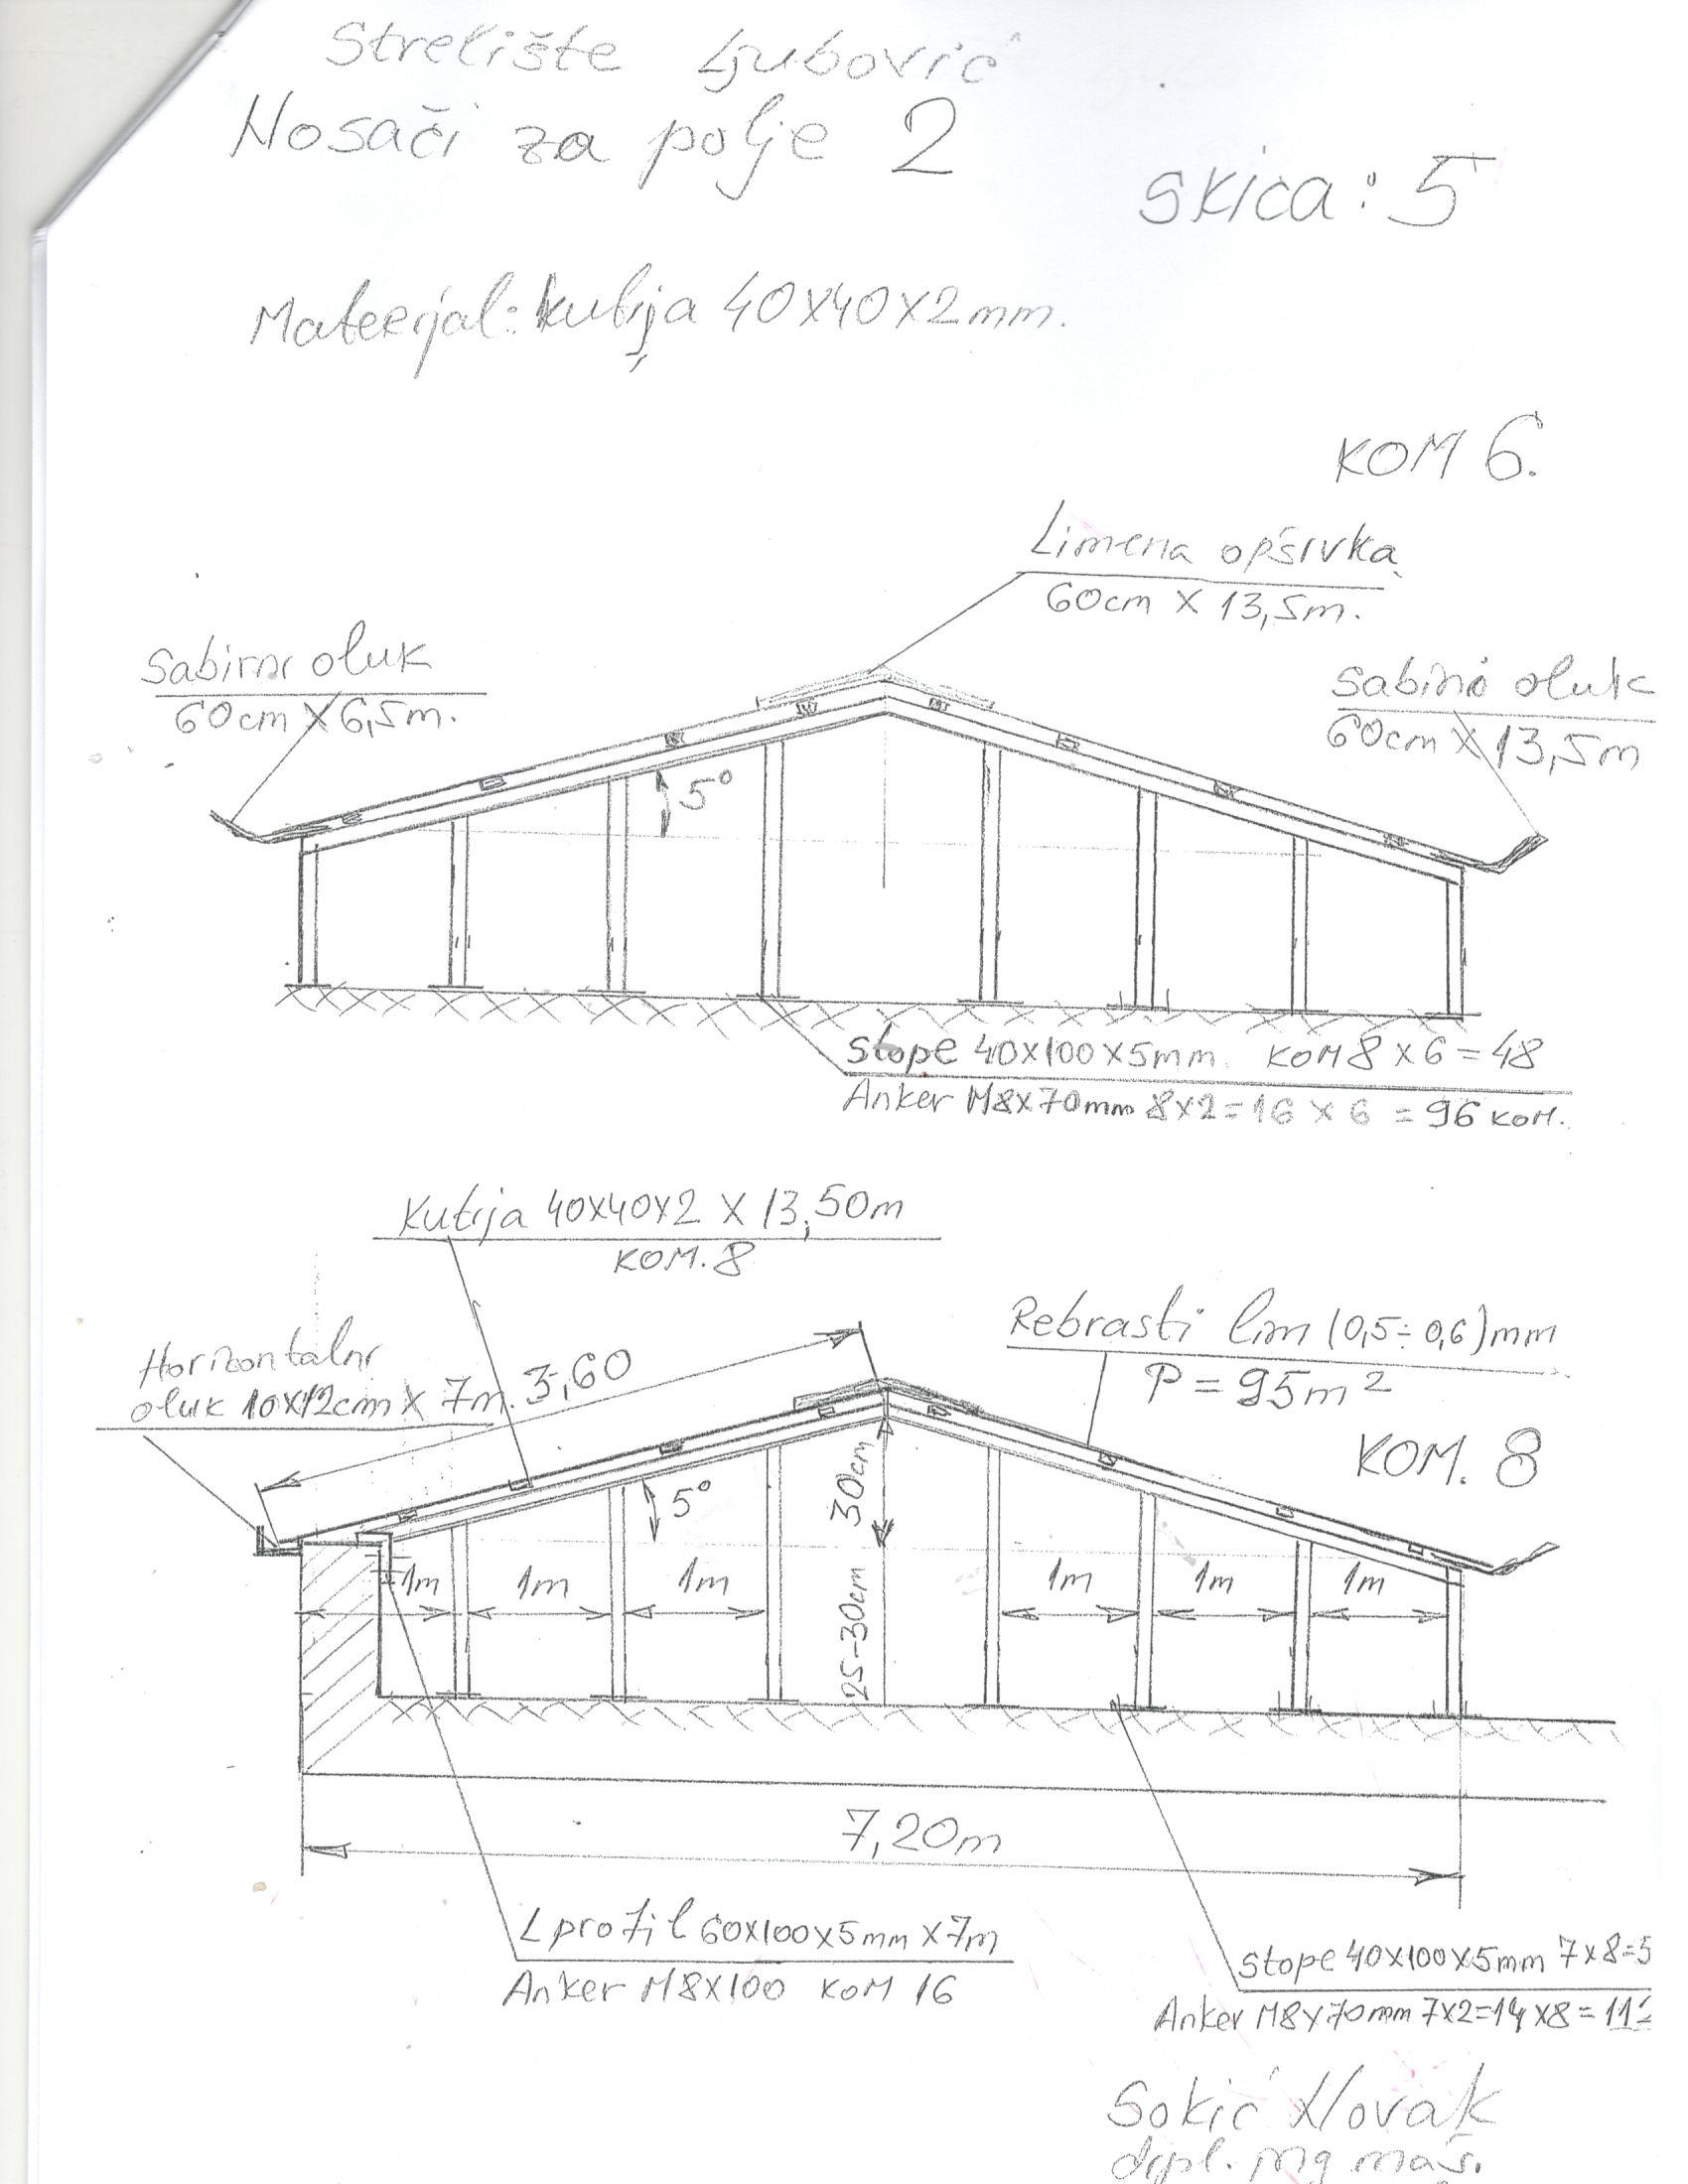 Strelište Ljubović
Nosači za polje 2
Skica: 5
Materijal: kutija 40x40x2mm.
KOM 6.
Limena opšivka
60cm X 13,5m.
Sabirni oluk
60cm X 6,5m.
Sabirni oluk
60cm X 13,5m
5°
Stope 40x100x5mm. KOM 8 x 6 = 48
Anker M8x70mm 8x2=16 x 6 = 96 KOM.
Kutija 40x40x2 X 13,50m
KOM. 8
Rebrasti lim (0,5÷0,6)mm
P = 95m²
Horizontalni
oluk 10x12cm x 7m.
3,60
KOM. 8
5°
30cm
1m 1m 1m 1m 1m 1m
25-30cm
7,20m
L profil 60x100x5mm x 7m
Anker M8x100 KOM 16
Stope 40x100x5mm 7x8=5
Anker M8x70mm 7x2=14 x8 = 112
Sokić Novak
dipl. ing maš.